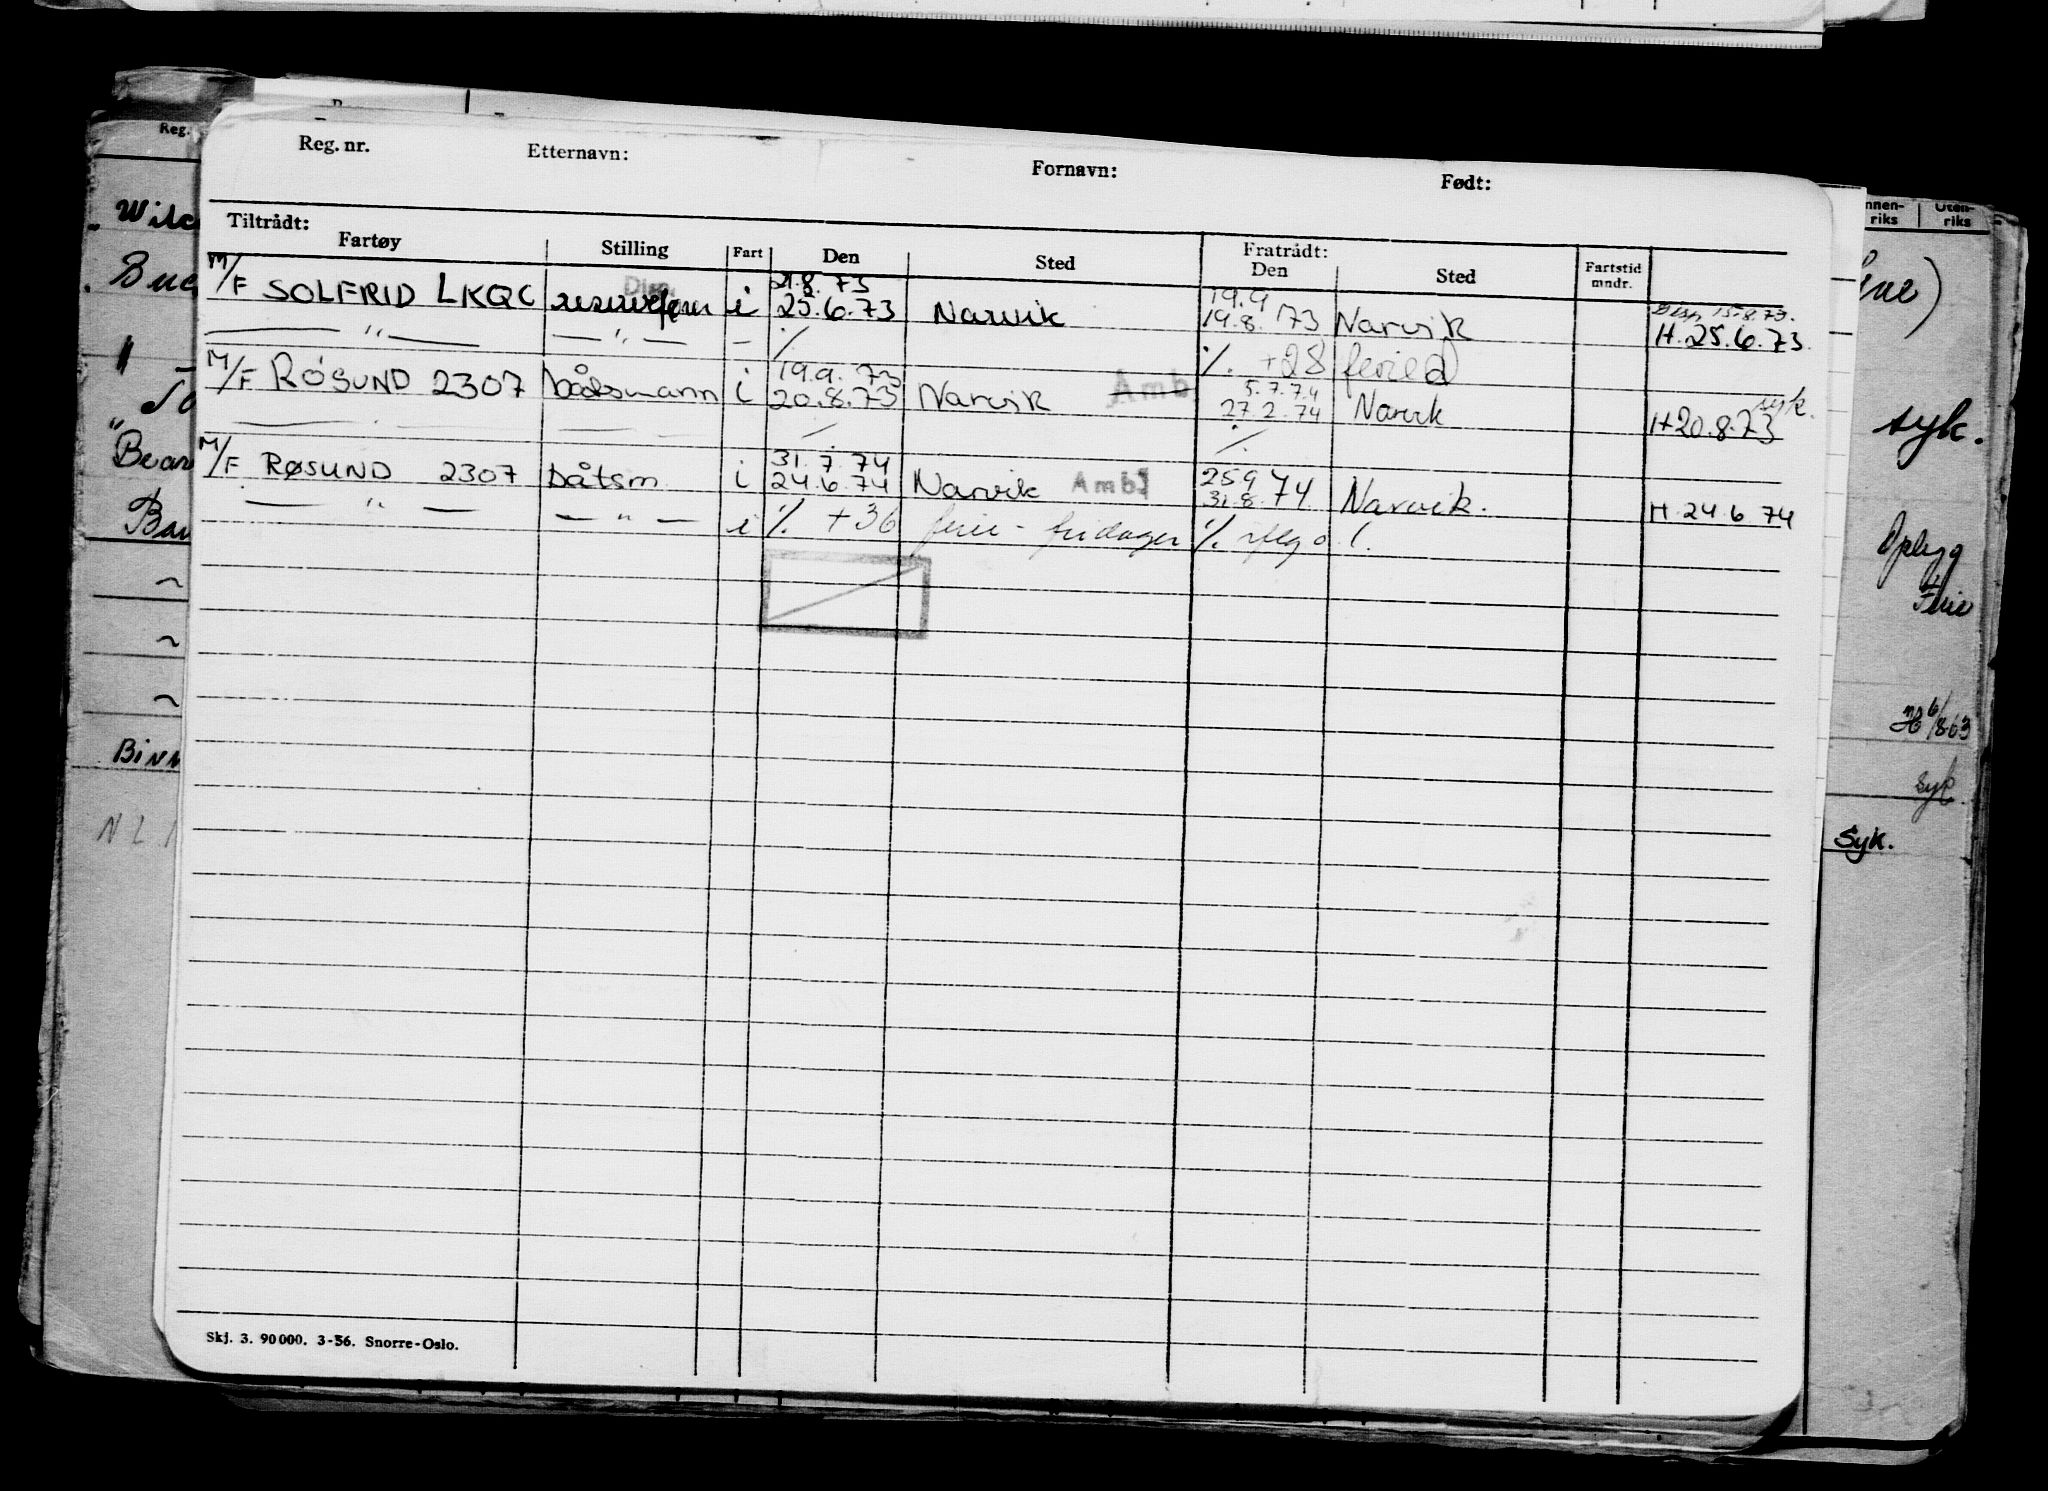 Reg. nr. Etternavn: Fornavn: Født:
Tiltrådt: Fratrådt:
Fartøy Stilling Fart Den Sted Den Sted Fartstid mndr.
Disp. 21.8.73 19.9 Disp 15.8.73.
M/F SOLFRID LKQC i 25.6.73 Narvik 19.8.73 Narvik H. 25.6.73.
— " — — " — - % %. +28 feried
19.9.73 5.7.74 syk.
M/F RØSUND 2307 båtsmann i 20.8.73 Narvik Amb 27.2.74 Narvik H 20.8.73
31.7.74 25 9
M/F RØSUND 2307 båtsm. i 24.6.74 Narvik Amb 31.8.74 Narvik. H. 24.6.74
— " — — " — i %. +36 ferie- fridager %.
Skj. 3. 90 000. 3-56. Snorre-Oslo.
Reg.
Innenriks Utenriks
syk.
Oplygg
Ferie
syk
Syk.